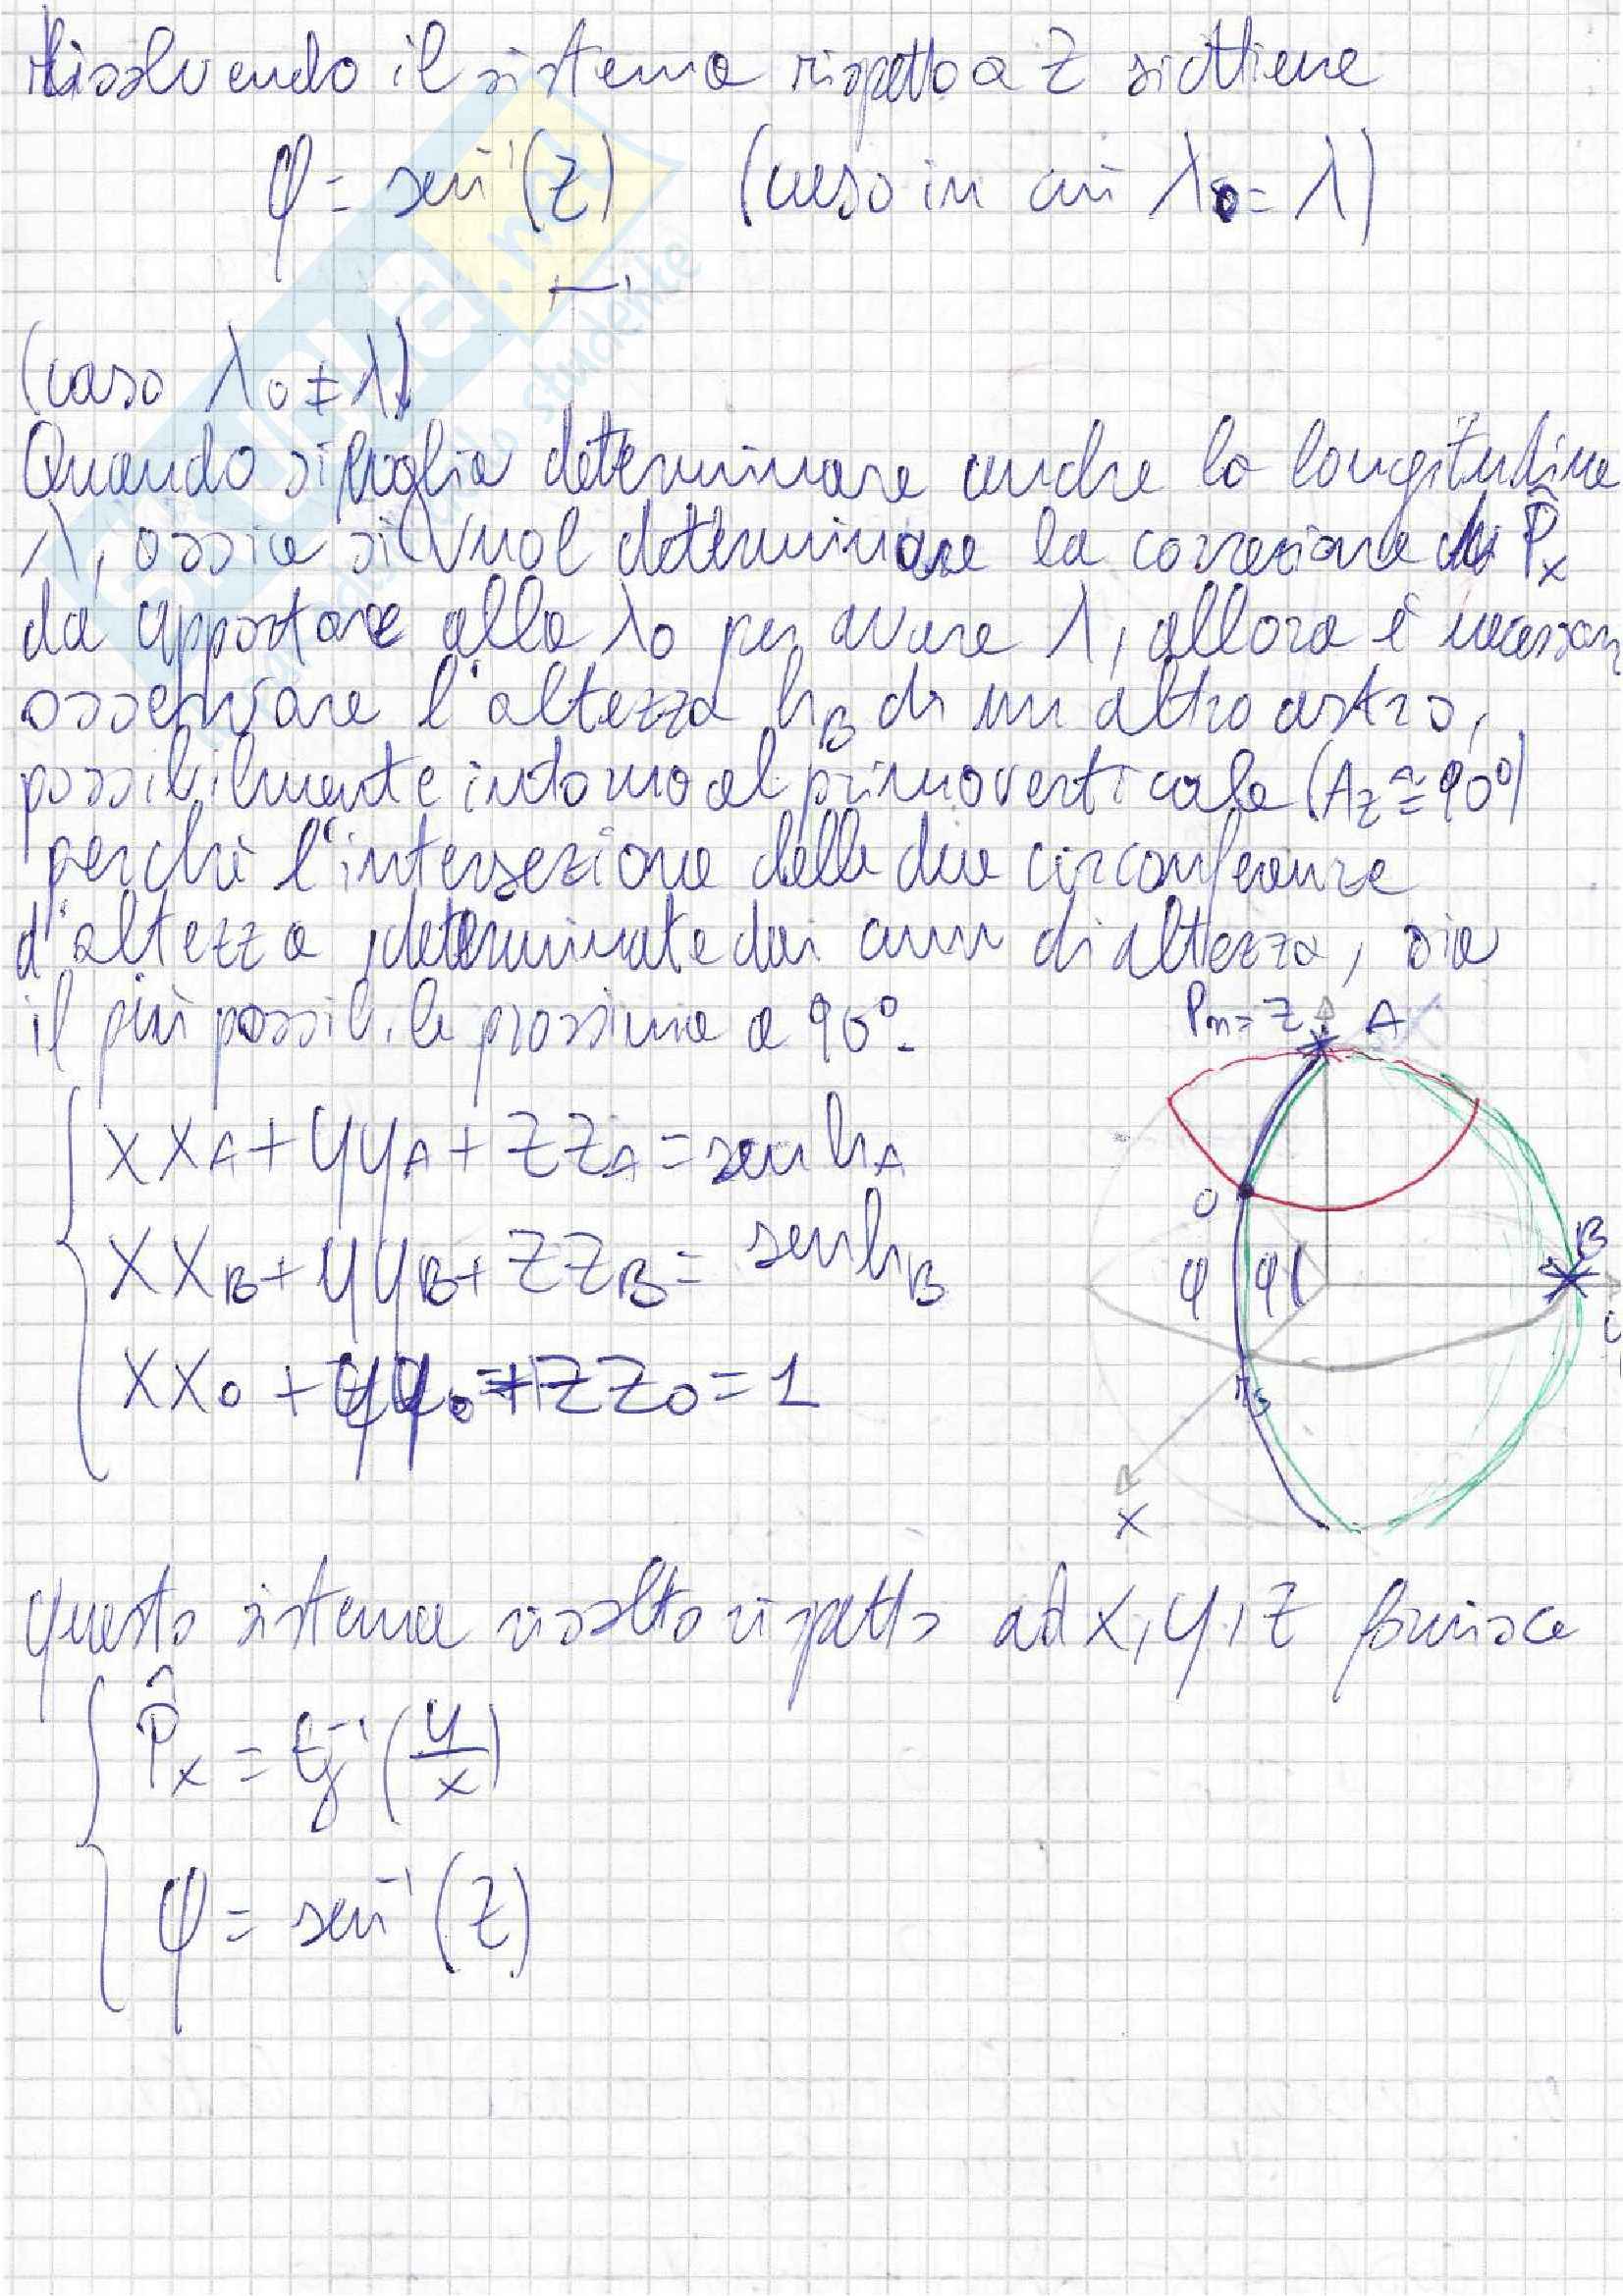 Risolvendo il sistema rispetto a Z si ottiene
φ = sen⁻¹(Z) (caso in cui λ₀ = λ)
(caso λ₀ ≠ λ)
Quando si voglia determinare anche la longitudine
λ, ossia si vuol determinare la correzione di P̂x
da apportare alla λ₀ per avere λ, allora è
osservare l'altezza h_B di un altro astro,
possibilmente intorno al primo verticale (Az ≅ 90°)
perché l'intersezione delle due circonferenze
d'altezza, determinate dai di altezza, sia
il più possibile prossima a 90°.
Pn = Z A
x x_A + y y_A + z z_A = sen h_A
O
x x_B + y y_B + z z_B = sen h_B
B
φ φ
x x₀ + y y₀ + z z₀ = 1
x
questo sistema risolto rispetto ad x, y, z fornisce
P̂x = tg⁻¹(y/x)
φ = sen⁻¹(Z)